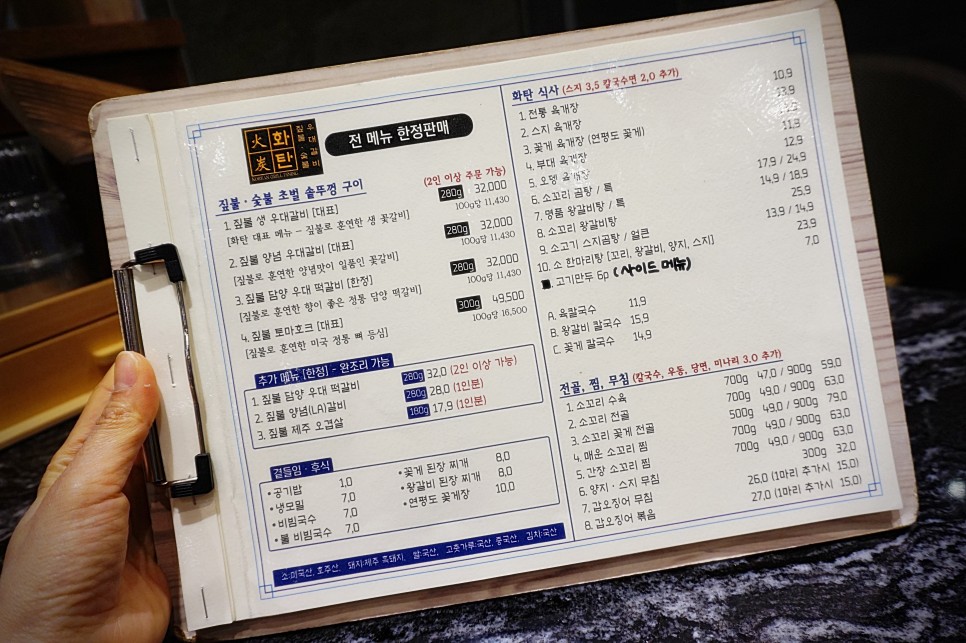 火 화
炭 탄
우대갈비
짚불·숯불
전 메뉴 한정판매
짚불·숯불 초벌 솥뚜껑 구이
(2인 이상 주문 가능)
1. 짚불 생 우대갈비 [대표] 280g 32,000
[화탄 대표 메뉴 - 짚불로 훈연한 생 꽃갈비] 100g당 11,430
2. 짚불 양념 우대갈비 [대표] 280g 32,000
[짚불로 훈연한 양념맛이 일품인 꽃갈비] 100g당 11,430
3. 짚불 담양 우대 떡갈비 [한정] 280g 32,000
[짚불로 훈연한 향이 좋은 정통 담양 떡갈비] 100g당 11,430
4. 짚불 토마호크 [대표] 300g 49,500
[짚불로 훈연한 미국 정통 뼈 등심] 100g당 16,500
추가 메뉴 [한정] - 완조리 가능
1. 짚불 담양 우대 떡갈비 280g 32,0 (2인 이상 가능)
2. 짚불 양념(LA)갈비 280g 28,0 (1인분)
3. 짚불 제주 오겹살 180g 17,9 (1인분)
곁들임·후식
•공기밥 1,0
•냉모밀 7,0
•비빔국수 7,0
•불 비빔국수 7,0
•꽃게 된장 찌개 8,0
•왕갈비 된장 찌개 8,0
•연평도 꽃게장 10,0
소:미국산, 호주산, 돼지:제주 흑돼지, 쌀:국산, 고춧가루:국산,중국산, 김치:국산
화탄 식사 (스지 3,5 칼국수면 2,0 추가)
1. 전통 육개장 10,9
2. 스지 육개장 13,9
3. 꽃게 육개장 (연평도 꽃게)
4. 부대 육개장 11,9
5. 오뎅 육개장 12,9
6. 소꼬리 곰탕 / 특 17,9 / 24,9
7. 명품 왕갈비탕 / 특 14,9 / 18,9
8. 소꼬리 왕갈비탕 25,9
9. 소고기 스지곰탕 / 얼큰 13,9 / 14,9
10. 소 한마리탕 [꼬리, 왕갈비, 양지, 스지] 23,9
■. 고기만두 6p (사이드 메뉴) 7,0
A. 육칼국수 11,9
B. 왕갈비 칼국수 15,9
C. 꽃게 칼국수 14,9
전골, 찜, 무침 (칼국수, 우동, 당면, 미나리 3,0 추가)
1. 소꼬리 수육 700g 47,0 / 900g 59,0
2. 소꼬리 전골 700g 49,0 / 900g 63,0
3. 소꼬리 꽃게 전골 500g 49,0 / 900g 79,0
4. 매운 소꼬리 찜 700g 49,0 / 900g 63,0
5. 간장 소꼬리 찜 700g 49,0 / 900g 63,0
6. 양지·스지 무침 300g 32,0
7. 갑오징어 무침 26,0 (1마리 추가시 15,0)
8. 갑오징어 볶음 27,0 (1마리 추가시 15,0)